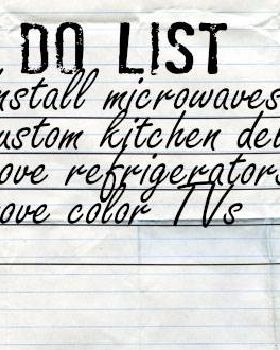 DO LIST
nstall microwaves
ustom kitchen del
ove refrigerators
ove color TVs